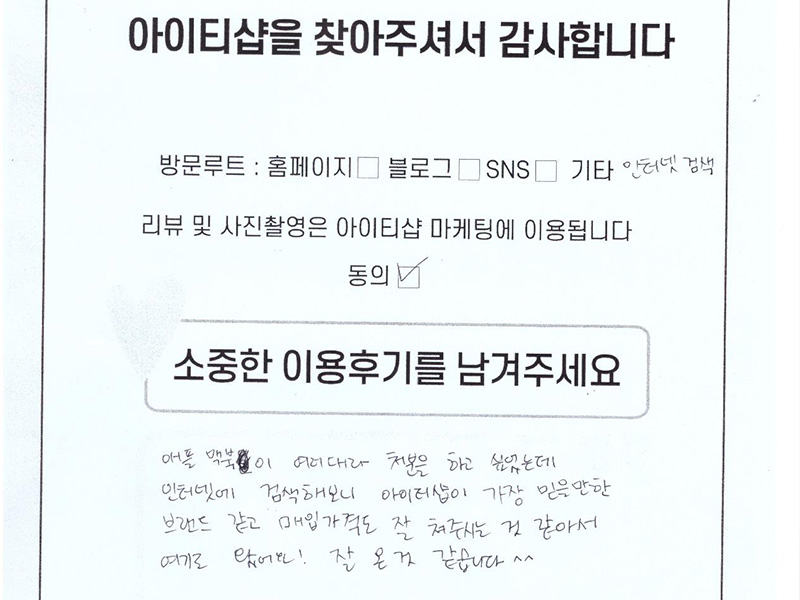 아이티샵을 찾아주셔서 감사합니다
방문루트 : 홈페이지 블로그 SNS 기타 인터넷 검색
리뷰 및 사진촬영은 아이티샵 마케팅에 이용됩니다
동의
소중한 이용후기를 남겨주세요
애플 맥북이 여러대라 처분을 하고 싶었는데
인터넷에 검색해보니 아이티샵이 가장 믿을만한
브랜드 같고 매입가격도 잘 쳐주시는 것 같아서
여기로 왔어요! 잘 온것 같습니다 ^^